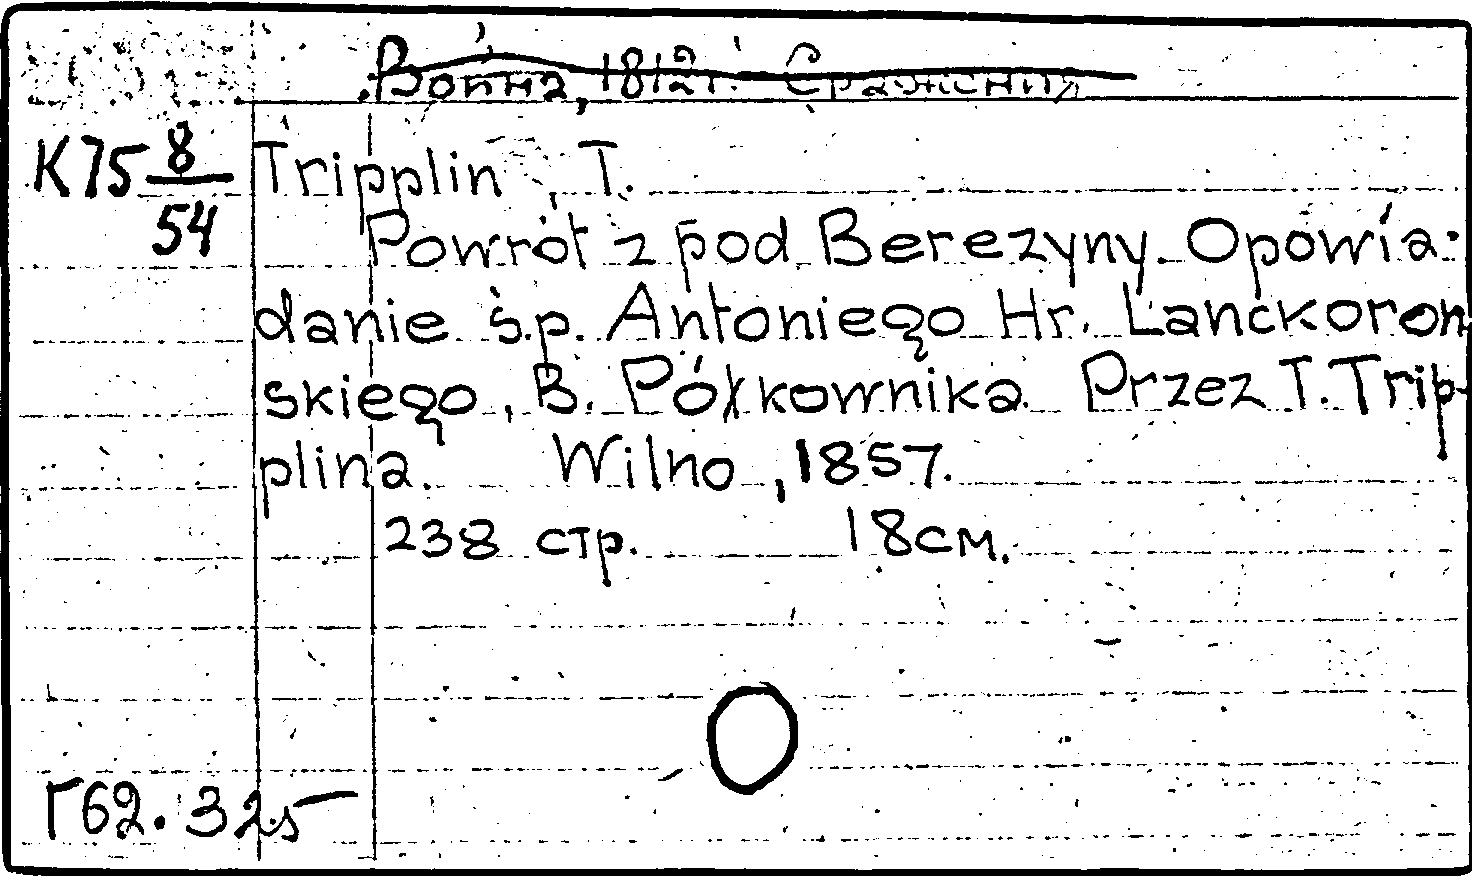 Война, 1812г. Сражения
K75 8/54 Tripplin, T.
Powrót z pod Berezyny. Opowia-
danie ś.p. Antoniego Hr. Lanckoroń-
skiego, B. Półkownika. Przez T. Trip-
plina. Wilno, 1857.
238 стр. 18см.
Г62.325